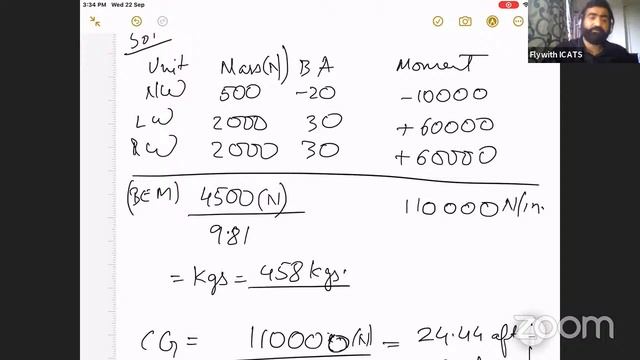 3:34 PM Wed 22 Sep
Sol
Unit Mass(N) BA Moment
NW 500 -20 -10000
LW 2000 30 +60000
RW 2000 30 +60000
(BEM) 4500(N) 110000 N/in.
9.81
= Kgs = 458 kgs.
CG = 110000(N) = 24.44 aft
Flywith ICATS
zoom